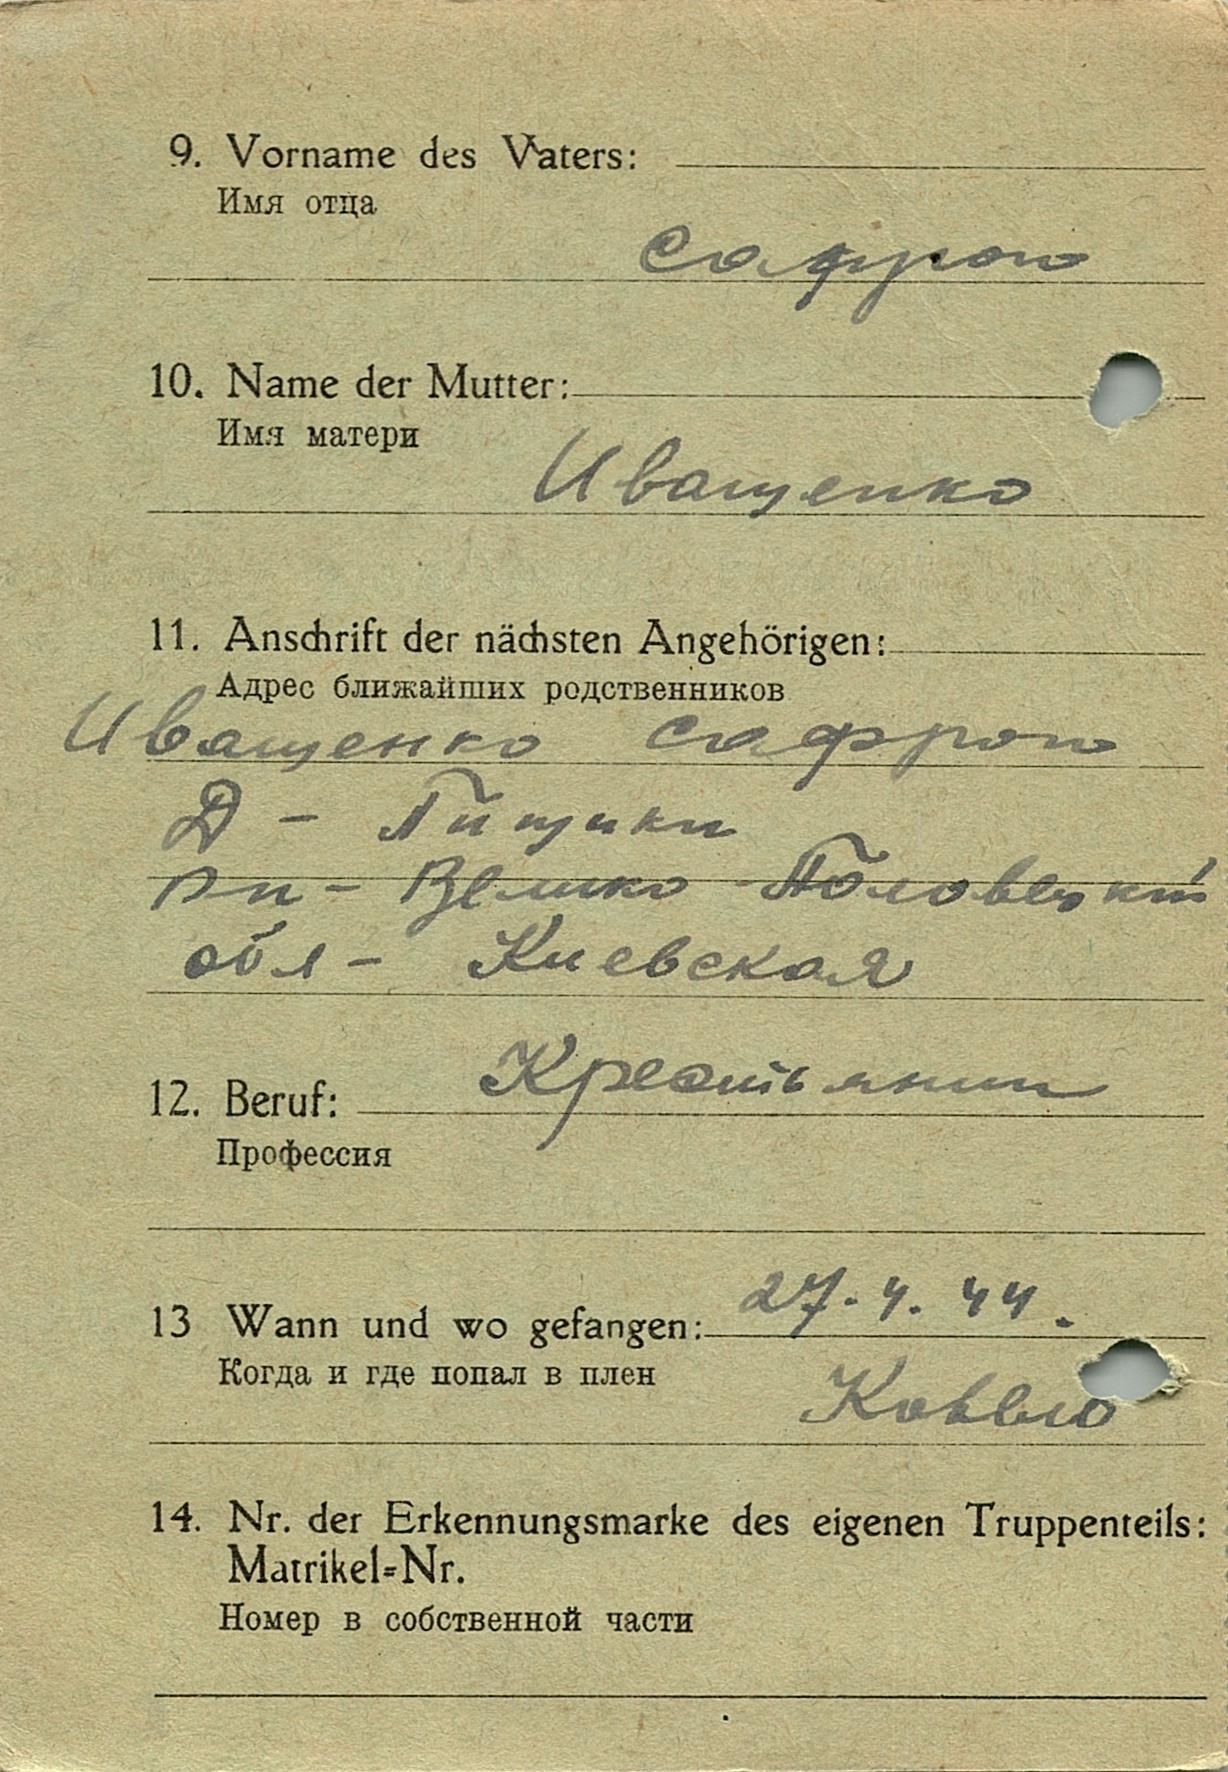 9. Vorname des Vaters:
Имя отца
Сафрон
10. Name der Mutter:
Имя матери
Иващенко
11. Anschrift der nächsten Angehörigen:
Адрес ближайших родственников
Иващенко Сафрон
Д - Пищики
Рн - Велико Половецкий
обл - Киевская
Крестьянин
12. Beruf:
Профессия
27.4.44.
13 Wann und wo gefangen:
Когда и где попал в плен
14. Nr. der Erkennungsmarke des eigenen Truppenteils:
Matrikel-Nr.
Номер в собственной части